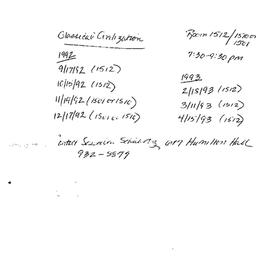 Classical Civilization
Room 1512/1500 or
1501
7:30-9:30 pm
1992
9/17/92 (1512)
10/15/92 (1512)
11/19/92 (1501 or 1510)
12/17/92 (1501 or 1510)
1993
2/18/93 (1512)
3/11/93 (1512)
4/15/93 (1512)
Hamilton Hall
932-5579